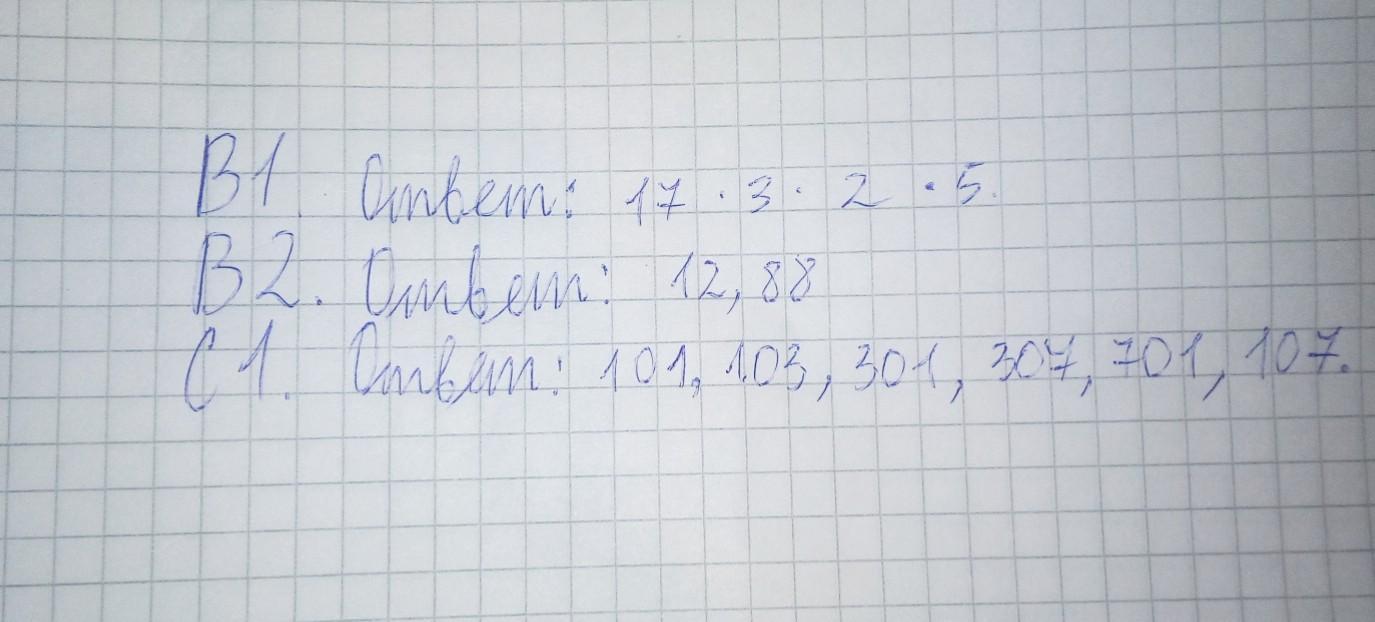 В1. Ответ: 17 · 3 · 2 · 5.
В2. Ответ: 12,88
С1. Ответ: 101, 103, 301, 307, 701, 107.